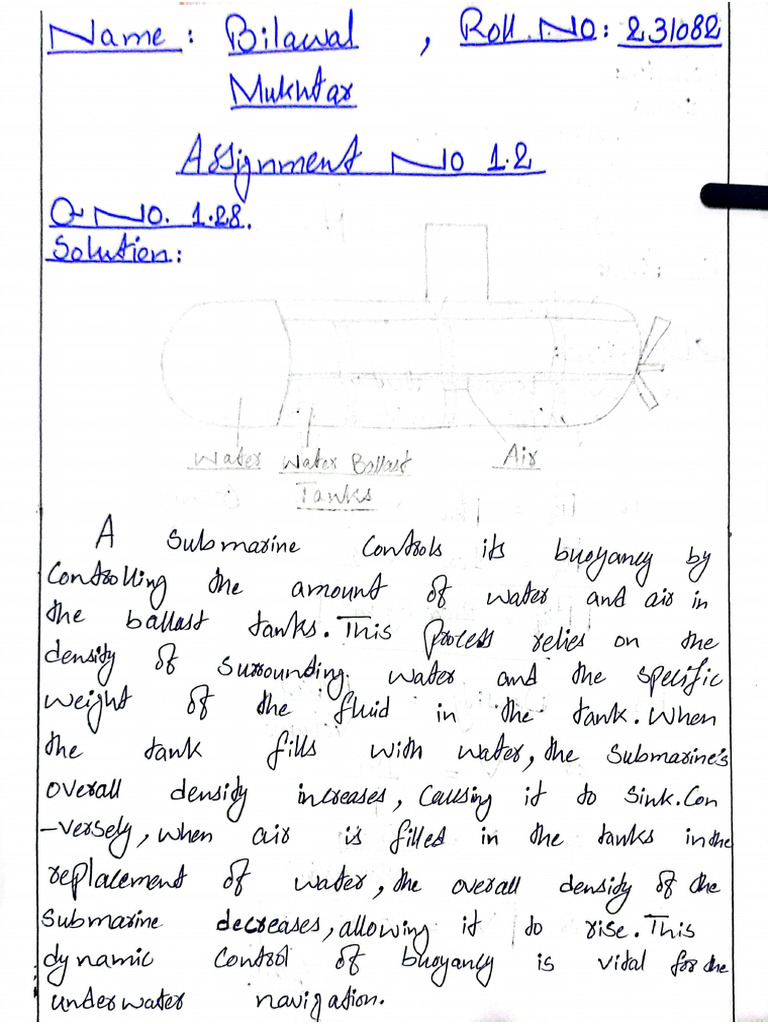 Name: Bilawal, Roll.No: 231082
Mukhtar
Assignment No 1.2
Q No. 1.28.
Solution:
Water Water Ballast Air
Tanks
A submarine controls its buoyancy by
Controlling the amount of water and air in
the ballast tanks. This process relies on the
density of surrounding water and the specific
weight of the fluid in the tank. When
the tank fills with water, the submarine's
overall density increases, causing it to sink. Con
-versely, when air is filled in the tanks in the
replacement of water, the overall density of the
submarine decreases, allowing it to rise. This
dynamic control of buoyancy is vital for the
underwater navigation.